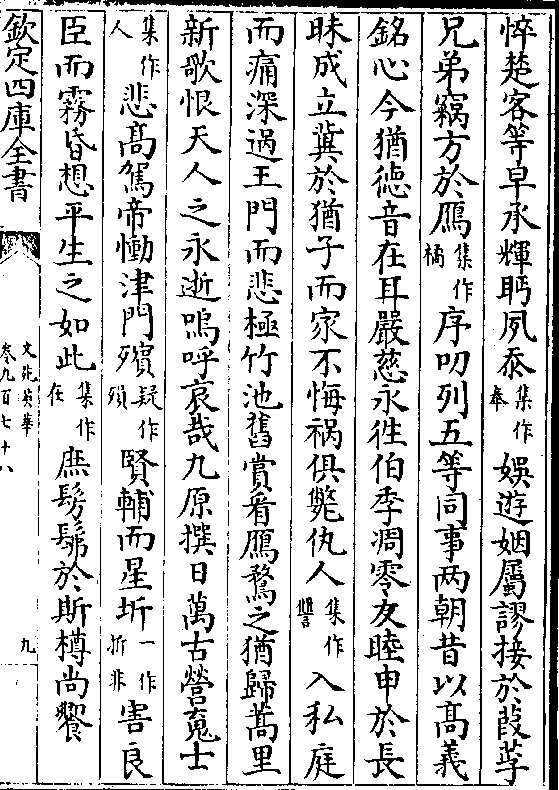 悴楚客等早承輝眄夙忝集作奉娛遊姻屬謬接於葭莩
兄弟竊方於鴈集作橘序叨列五等同事两朝昔以髙義
銘心今猶德音在耳嚴慈永徃伯季凋零友睦申於長
昧成立兾於猶子而家不悔祸俱斃仇人集作讐入私庭
而痛深過王門而悲極竹池舊賞看鴈鶩之猶歸蒿里
新歌恨天人之永逝嗚呼哀哉九原撰日萬古營䰟士
集作人悲髙駕帝慟津門殯疑作殞賢輔而星坼一作折非害良
臣而霧昏想平生之如此集作在庶髣髴於斯樽尚饗
欽定四庫全書
文苑英華
卷九百七十八
九